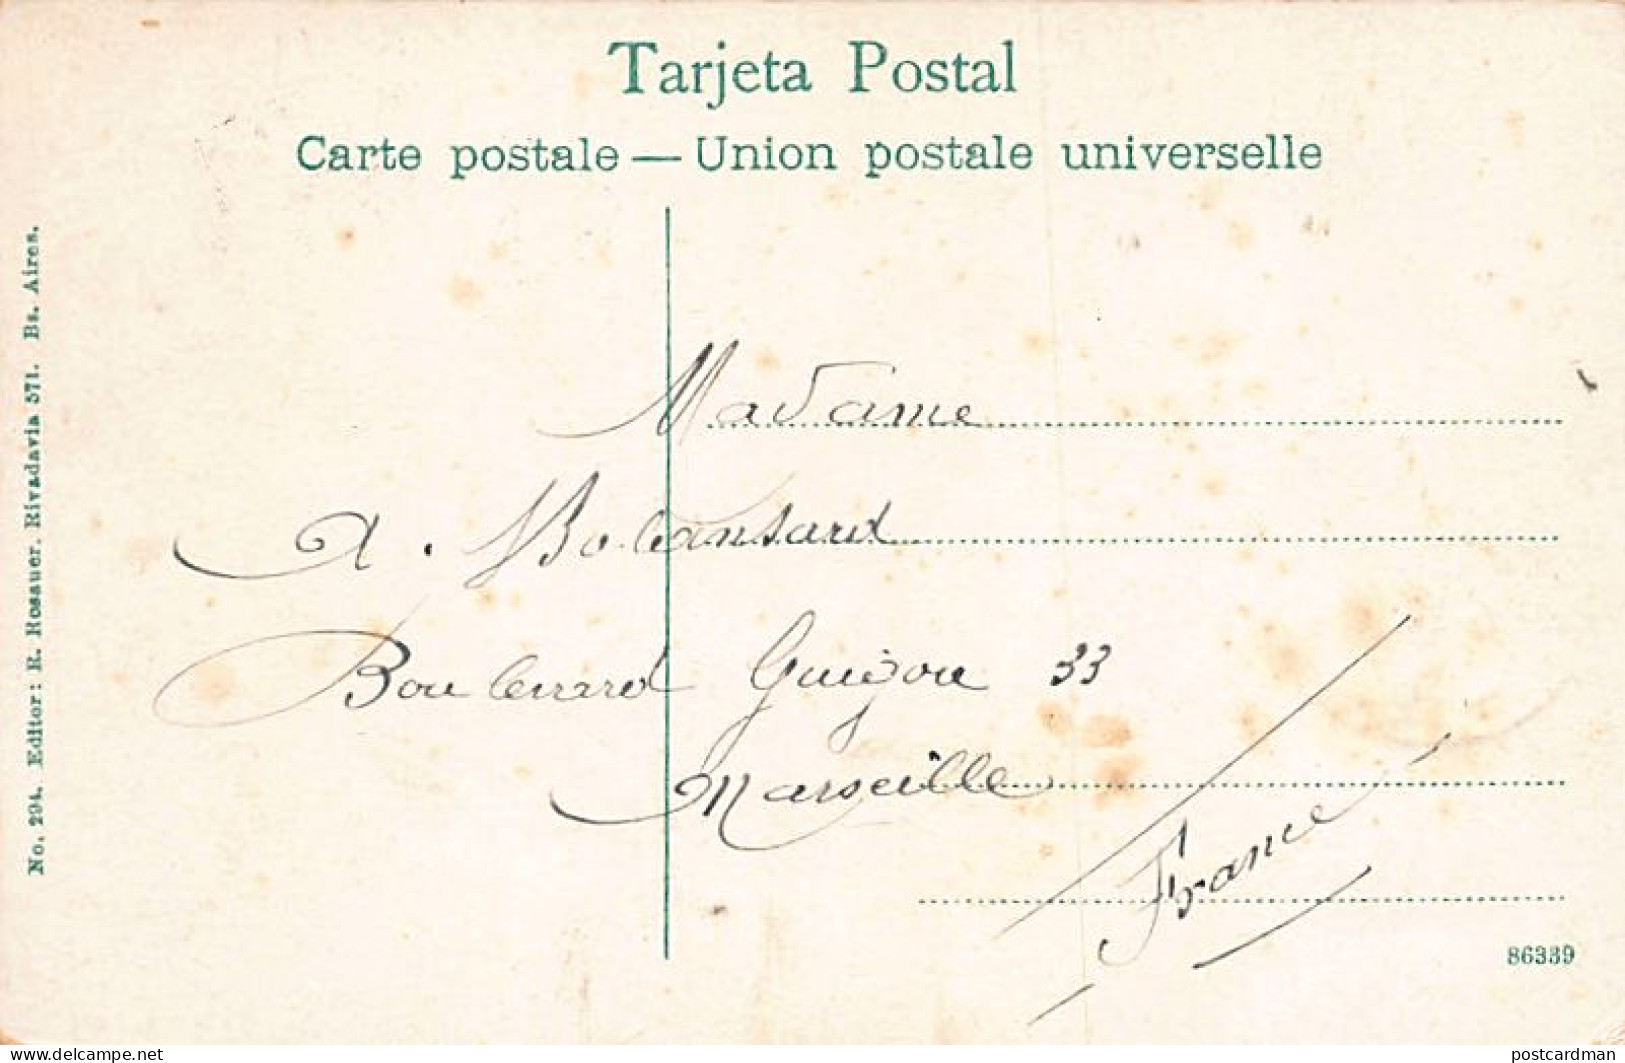 Tarjeta Postal
Carte postale — Union postale universelle
No. 294. Editor: R. Rosauer. Rivadavia 571. Bs. Aires.
Madame
A.
Boulevard Guigou 33
Marseille
France
86339
https://www.delcampe.net
postcardman